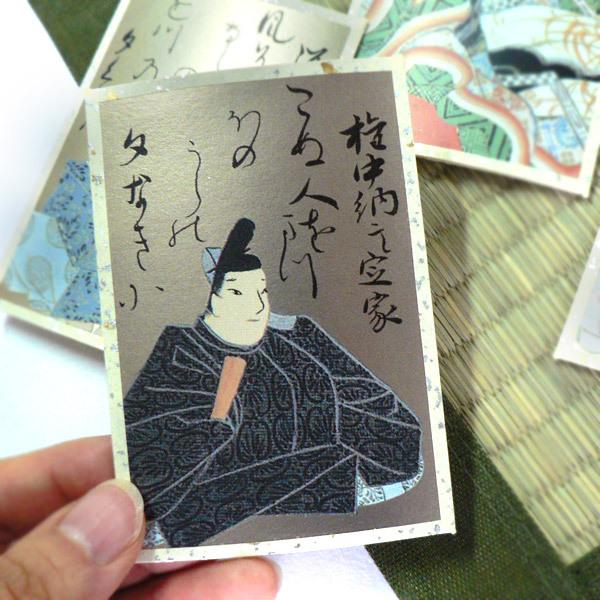 権中納言定家
こぬ人をまつ
ほの
うらの
夕なきに
風そ